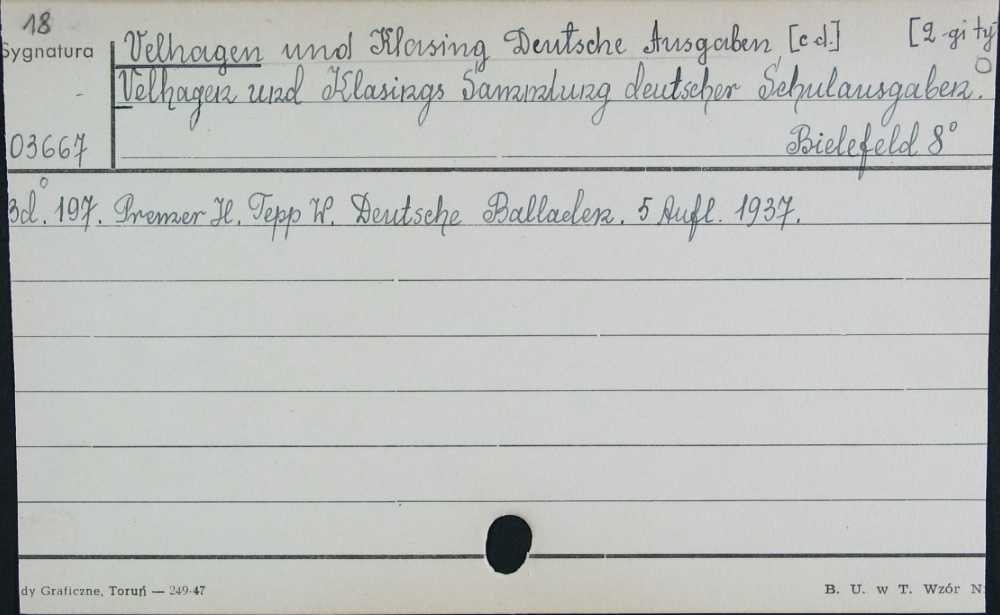 18
Sygnatura
Velhagen und Klasing Deutsche Ausgaben [c d.] [2-gi ty
Velhagen und Klasings Sammlung deutscher Schulausgaben.
03667
Bielefeld 8°
Bd. 197. Premer H. Tepp W. Deutsche Balladen. 5 Aufl. 1937.
dy Graficzne, Toruń — 249-47
B. U. w T. Wzór N